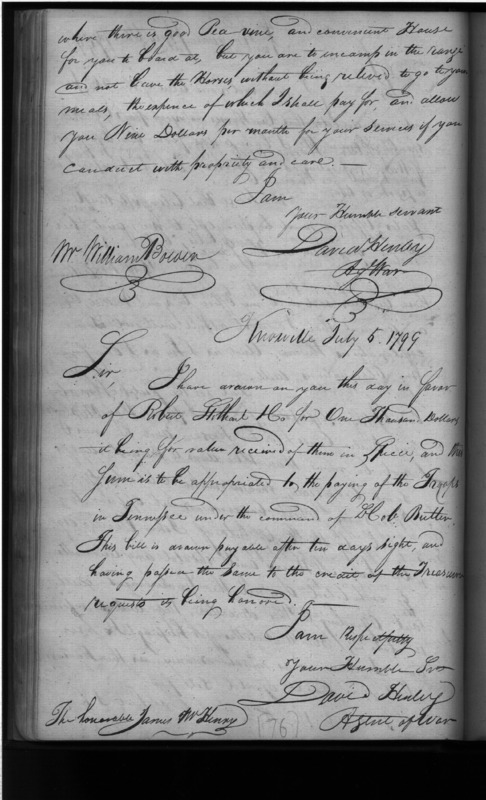 where there is good Pea vine, and convenient House
for you to board at, but you are to encamp in the range
and not leave the Horses without being relieved to go to your
meals, the expence of which I shall pay for and allow
you Nine Dollars per month for your services if you
conduct with propriety and care. —
I am
Your Humble Servant
David Henley
Agt War
Mr William Bowen
Knoxville July 5. 1799
Sir,
I have drawn on you this day in favor
of Robert & Co for One Thousand Dollars
it being for value received of them in Specie, and this
Sum is to be appropriated to the paying of the Troops
in Tennessee under the command of Butler.
This bill is drawn payable after ten days sight, and
having passed the same to the credit of the Treasurer
requests its being honored. —
I am Respectfully
Your Humble Srv
David Henley
Agent of War
The honorable James McHenry
[76]